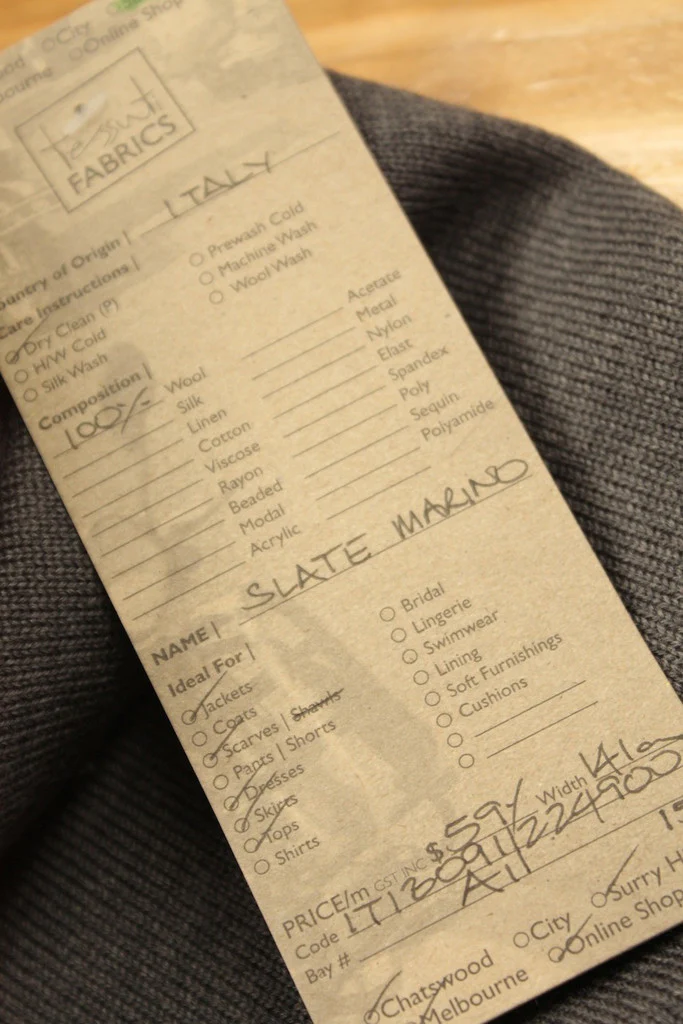 City
Online Shop
tessuti
FABRICS
Country of Origin | ITALY
Care Instructions |
Dry Clean (P)
H/W Cold
Silk Wash
Prewash Cold
Machine Wash
Wool Wash
Composition |
100% Wool
Silk
Linen
Cotton
Viscose
Rayon
Beaded
Modal
Acrylic
Acetate
Metal
Nylon
Elast
Spandex
Poly
Sequin
Polyamide
NAME | SLATE MARINO
Ideal For |
Jackets
Coats
Scarves | Shawls
Pants | Shorts
Dresses
Skirts
Tops
Shirts
Bridal
Lingerie
Swimwear
Lining
Soft Furnishings
Cushions
PRICE/m GST INC $59/ Width
Code
Bay # A11
Chatswood
City
Surry H
Melbourne
Online Shop